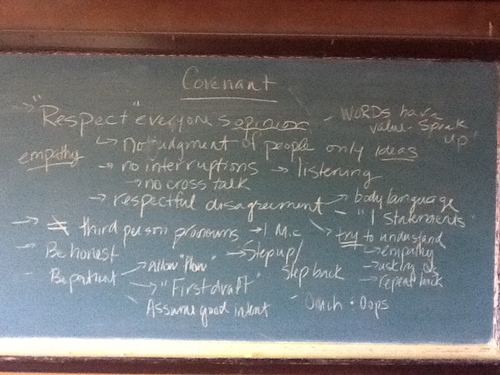 Covenant
→ "Respect" everyone's opinion
- WORDS have value - speak up"
↳ no judgment of people only ideas
empathy
→ no interruptions → listening
→ no cross talk
→ respectful disagreement → body language
→ "I Statements"
→ third person pronouns → 1 M.C
→ try to understand
→ empathy
→ asking Qs
→ repeat back
- Be honest
- Step up/
step back
Be patient → Allow "flow"
→ "First draft"
Assume good intent
- Ouch · Oops